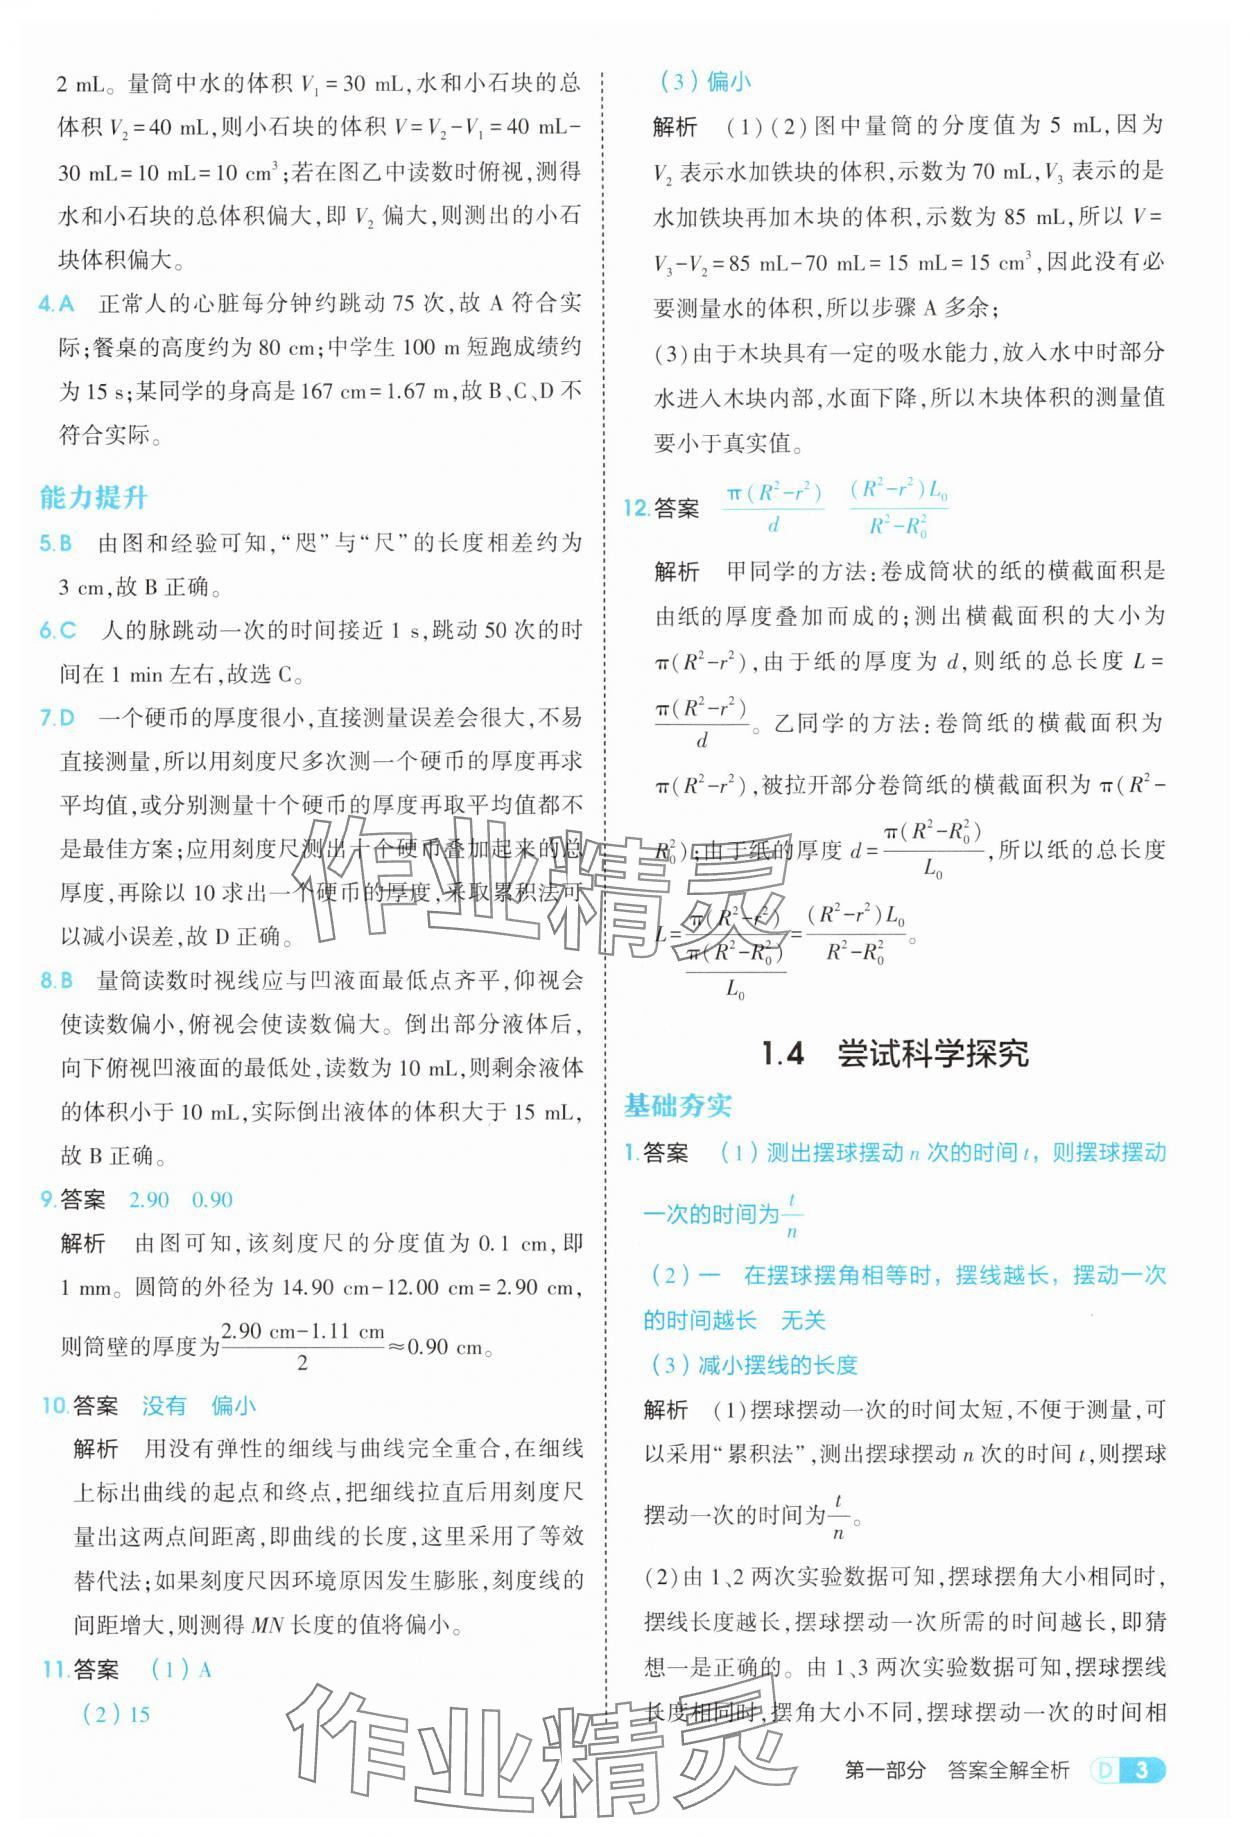 2 mL。量筒中水的体积 V₁=30 mL,水和小石块的总
体积 V₂=40 mL,则小石块的体积 V=V₂-V₁=40 mL-
30 mL=10 mL=10 cm³;若在图乙中读数时俯视,测得
水和小石块的总体积偏大,即 V₂ 偏大,则测出的小石
块体积偏大。
4.A 正常人的心脏每分钟约跳动 75 次,故 A 符合实
际;餐桌的高度约为 80 cm;中学生 100 m 短跑成绩约
为 15 s;某同学的身高是 167 cm=1.67 m,故 B、C、D 不
符合实际。
能力提升
5.B 由图和经验可知,“咫”与“尺”的长度相差约为
3 cm,故 B 正确。
6.C 人的脉跳动一次的时间接近 1 s,跳动 50 次的时
间在 1 min 左右,故选 C。
7.D 一个硬币的厚度很小,直接测量误差会很大,不易
直接测量,所以用刻度尺多次测一个硬币的厚度再求
平均值,或分别测量十个硬币的厚度再取平均值都不
是最佳方案;应用刻度尺测出十个硬币叠加起来的总
厚度,再除以 10 求出一个硬币的厚度,采取累积法可
以减小误差,故 D 正确。
8.B 量筒读数时视线应与凹液面最低点齐平,仰视会
使读数偏小,俯视会使读数偏大。倒出部分液体后,
向下俯视凹液面的最低处,读数为 10 mL,则剩余液体
的体积小于 10 mL,实际倒出液体的体积大于 15 mL,
故 B 正确。
9.答案 2.90 0.90
解析 由图可知,该刻度尺的分度值为 0.1 cm,即
1 mm。圆筒的外径为 14.90 cm-12.00 cm=2.90 cm,
则筒壁的厚度为(2.90 cm-1.11 cm)/2≈0.90 cm。
10.答案 没有 偏小
解析 用没有弹性的细线与曲线完全重合,在细线
上标出曲线的起点和终点,把细线拉直后用刻度尺
量出这两点间距离,即曲线的长度,这里采用了等效
替代法;如果刻度尺因环境原因发生膨胀,刻度线的
间距增大,则测得 MN 长度的值将偏小。
11.答案 (1)A
(2)15
(3)偏小
解析 (1)(2)图中量筒的分度值为 5 mL,因为
V₂ 表示水加铁块的体积,示数为 70 mL,V₃ 表示的是
水加铁块再加木块的体积,示数为 85 mL,所以 V=
V₃-V₂=85 mL-70 mL=15 mL=15 cm³,因此没有必
要测量水的体积,所以步骤 A 多余;
(3)由于木块具有一定的吸水能力,放入水中时部分
水进入木块内部,水面下降,所以木块体积的测量值
要小于真实值。
12.答案 π(R²-r²)/d (R²-r²)L₀/(R²-R₀²)
解析 甲同学的方法:卷成筒状的纸的横截面积是
由纸的厚度叠加而成的;测出横截面积的大小为
π(R²-r²),由于纸的厚度为 d,则纸的总长度 L=
π(R²-r²)/d。乙同学的方法:卷筒纸的横截面积为
π(R²-r²),被拉开部分卷筒纸的横截面积为 π(R²-
R₀²);由于纸的厚度 d=π(R²-R₀²)/L₀,所以纸的总长度
L=π(R²-r²)/(π(R²-R₀²)/L₀)=(R²-r²)L₀/(R²-R₀²)。
1.4 尝试科学探究
基础夯实
1.答案 (1)测出摆球摆动 n 次的时间 t,则摆球摆动
一次的时间为t/n
(2)一 在摆球摆角相等时,摆线越长,摆动一次
的时间越长 无关
(3)减小摆线的长度
解析 (1)摆球摆动一次的时间太短,不便于测量,可
以采用“累积法”,测出摆球摆动 n 次的时间 t,则摆球
摆动一次的时间为t/n。
(2)由 1、2 两次实验数据可知,摆球摆角大小相同时,
摆线长度越长,摆球摆动一次所需的时间越长,即猜
想一是正确的。由 1、3 两次实验数据可知,摆球摆线
长度相同时,摆角大小不同,摆球摆动一次的时间相
第一部分 答案全解全析 D 3
作业精灵
作业精灵